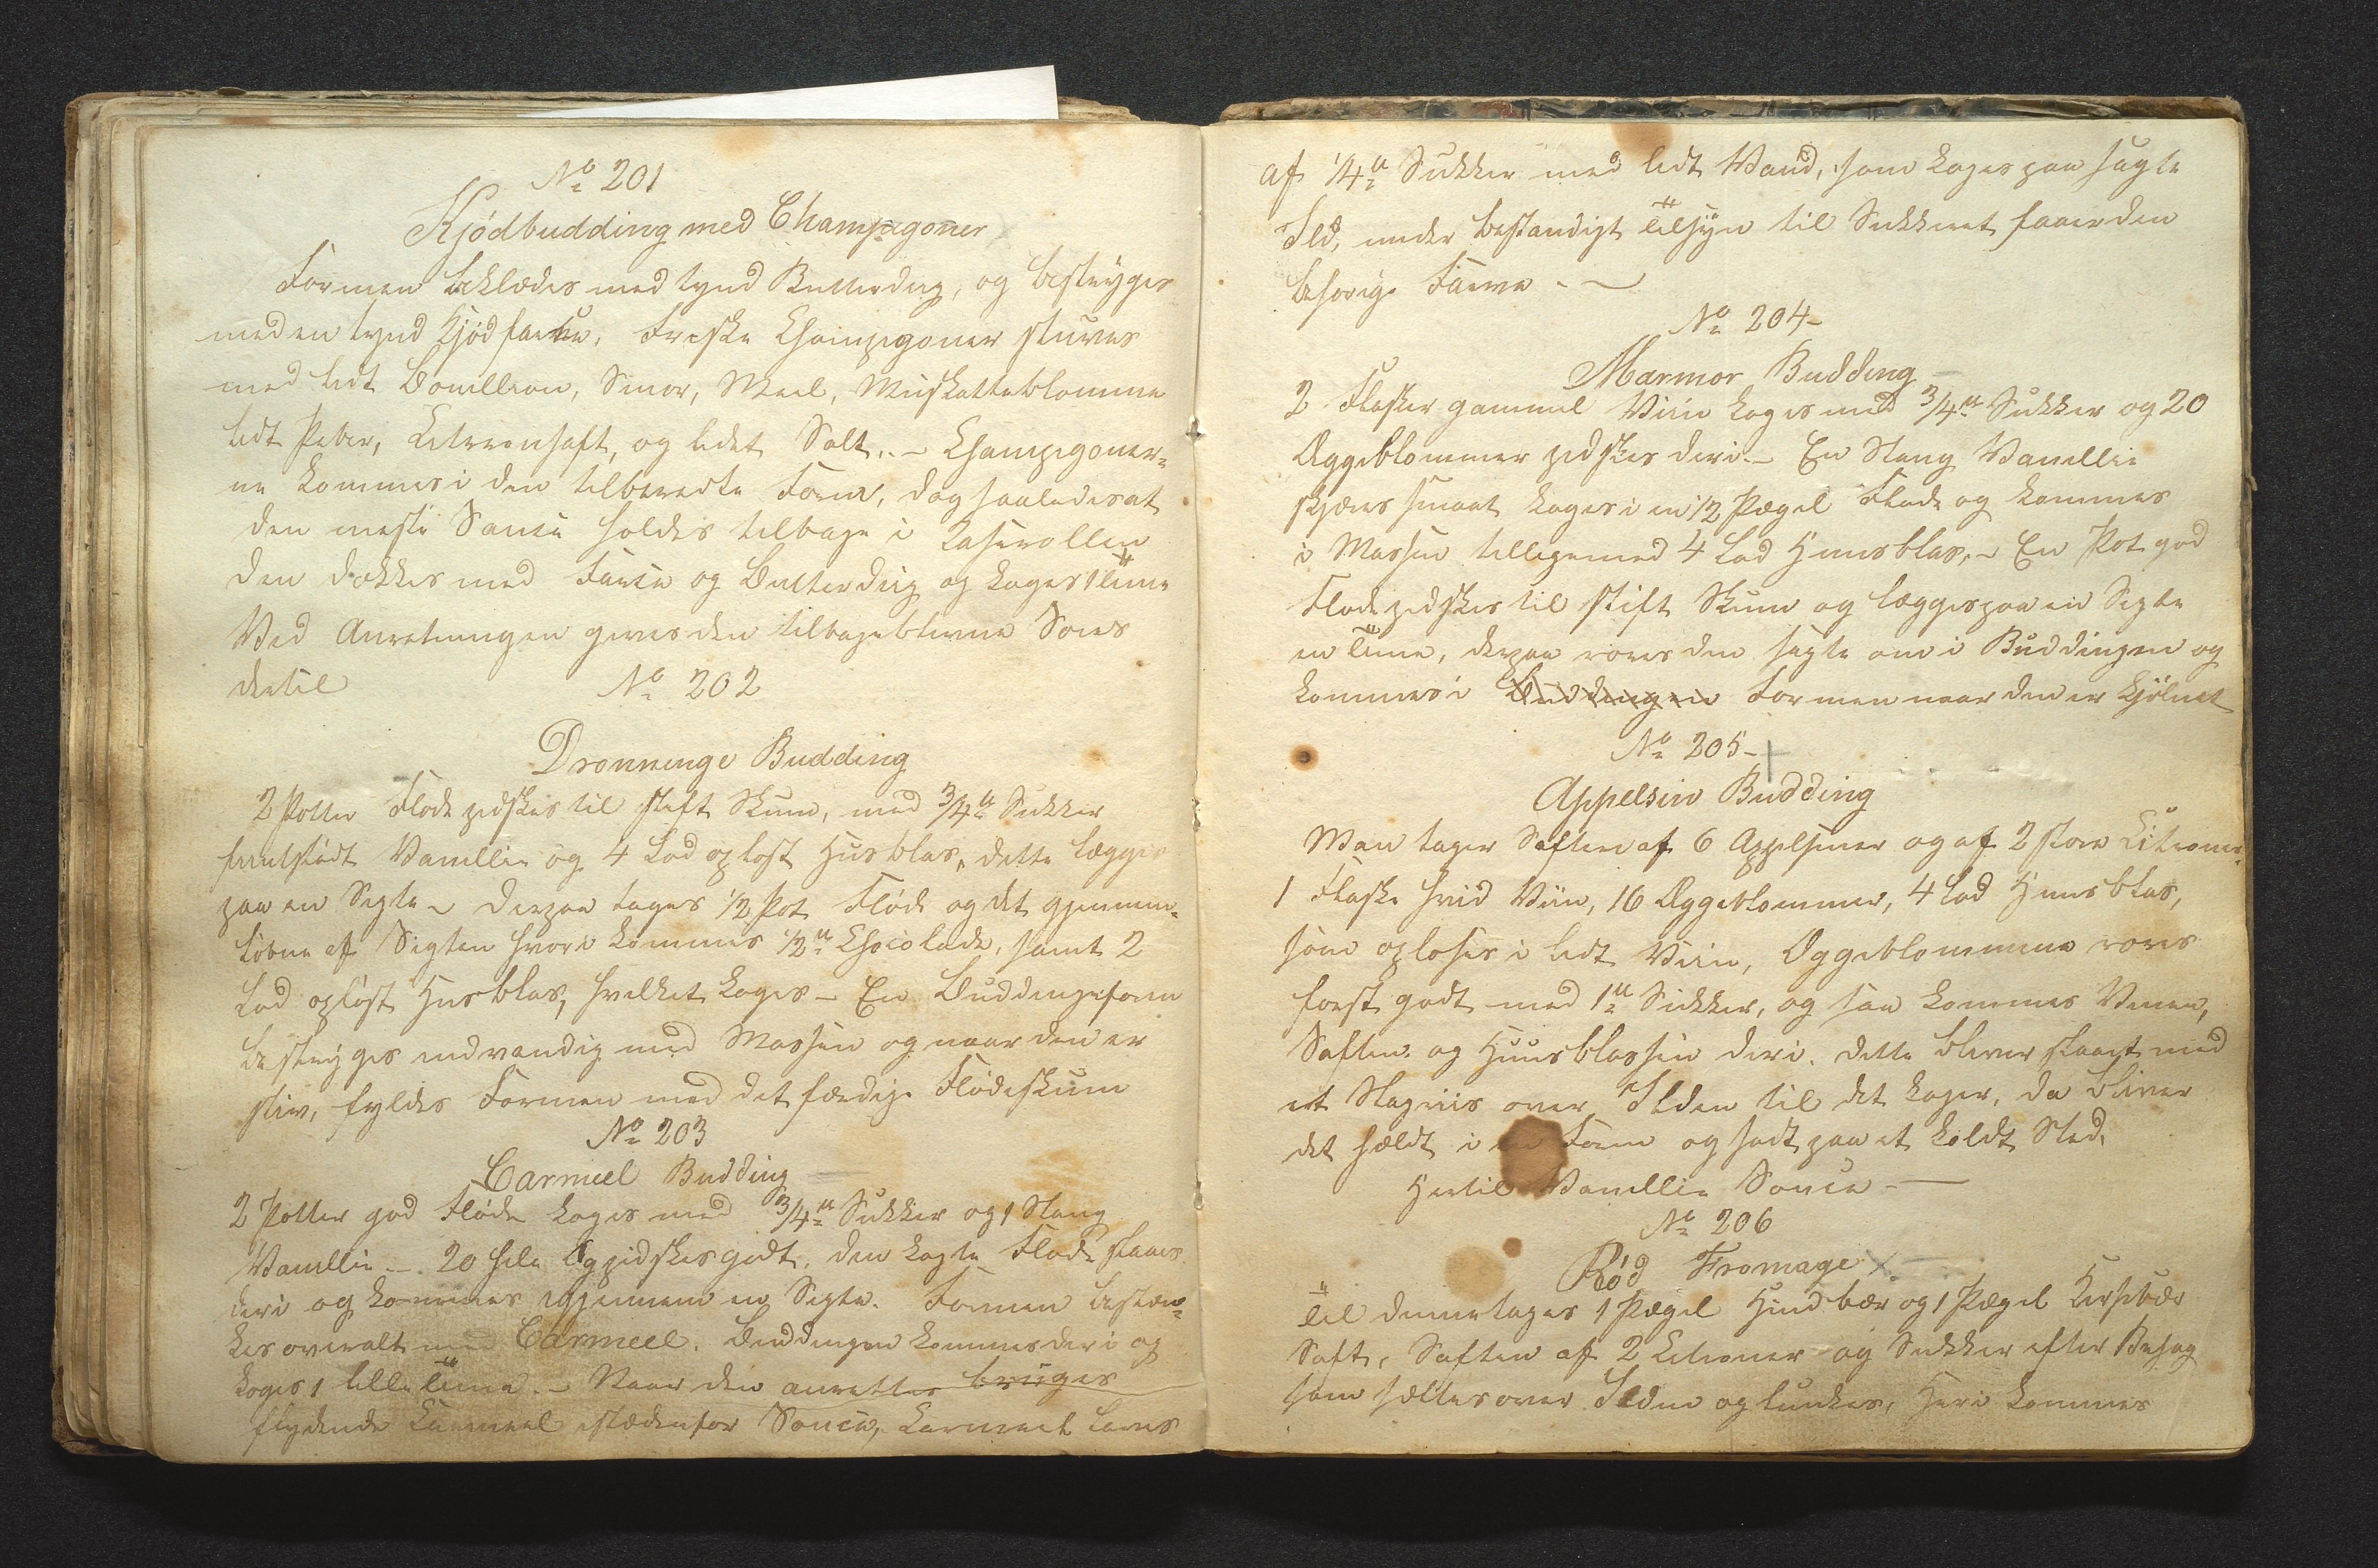 No 201
Kjödbudding med Champagoner
Formen beklædes med tynd Butterdeig, og bestryges
med en tynd Kjödfarce, Friske Champigoner stuves
med lidt Bouillion, Smør, Meel, Muskatteblomme
lidt Peber, Citronsaft, og lidet Salt. - Champigoner-
ne kommes i den tilberedte Form, dog saaledes at
den meste Sauce holdes tilbage i Caserollen
den dækkes med Farce og Butterdeig og koges 1 Time
Ved Anretningen gives den tilbageblevne Soves
dertil
No 202
Dronninge Budding
2 Potter Flöde pidskes til stift Skum, med 3/4 ℔ Sukker
fiintstödt Vanillie og 4 Lod oplöst Husblas, dette lægges
paa en Sigte - Derpaa tages 1/2 Pot Flöde og det gjennem-
löbne af Sigten hvori kommes 1/2 ℔ Chocolade, samt 2
Lod oplöst Husblas, hvilket koges - En Buddingeform
bestryges indvendig med Massen og naar den er
stiv, fyldes Formen med det færdige Flödeskum
No 203
Carmeel Budding
2 Potter god Flöde koges med 3/4 ℔ Sukker og 1 Stang
Vanillie - 20 hele Æg pidskes godt, den kogte Flöde slaaes
deri og kommes igjennem en Sigte. Formen bestæn-
kes overalt med Carmeel. Buddingen kommes deri og
koges 1 lille Time. - Naar den anrettes bruges
flydende Carmeel istædenfor Sauce, Carmeel laves
af 1/4 ℔ Sukker med lidt Vand, som koges paa sagte
Ild, under bestandigt Tilsyn til Sukkeret faaer den
behørige Farve. -
No 204-
Marmor Budding
2 Flasker gammel Viin koges med 3/4 ℔ Sukker og 20
Æggeblommer pidskes deri. - En Stang Vanillie
skjæres smaat koges i en 1/2 Pægel Flöde og kommes
i Massen tilligemed 4 Lod Huusblas, - En Pot god
Flöde pidskes til stift Skum og lægges paa en Sigte
en Time, derpaa røres den sagte om i Buddingen og
kommes i Buddingen Formen naar den er kjölnet
No 205-
Appelsin Budding
Man tager Saften af 6 Appelsiner og af 2 store Citroner.
1 Flaske hvid Viin, 16 Æggeblommer, 4 Lod Huusblas,
som oplöses i lidt Viin, Æggeblommerne røres
først godt med 1 ℔ Sukker, og saa kommes Vinen,
Saften og Huusblassen deri. dette bliver slaaet med
et Slagriis over Ilden til det koger, da bliver
det hældt i en Form og sadt paa et koldt Sted.
Hertil Vanillie Sauce -
No 206
Röd Fromage
Til denne tages 1 Pægel Hindbær og 1 Pægel Kirsebær
Saft, Saften af 2 Citroner og Sukker efter Behag
som sættes over Ilden og lunkes, Heri kommes